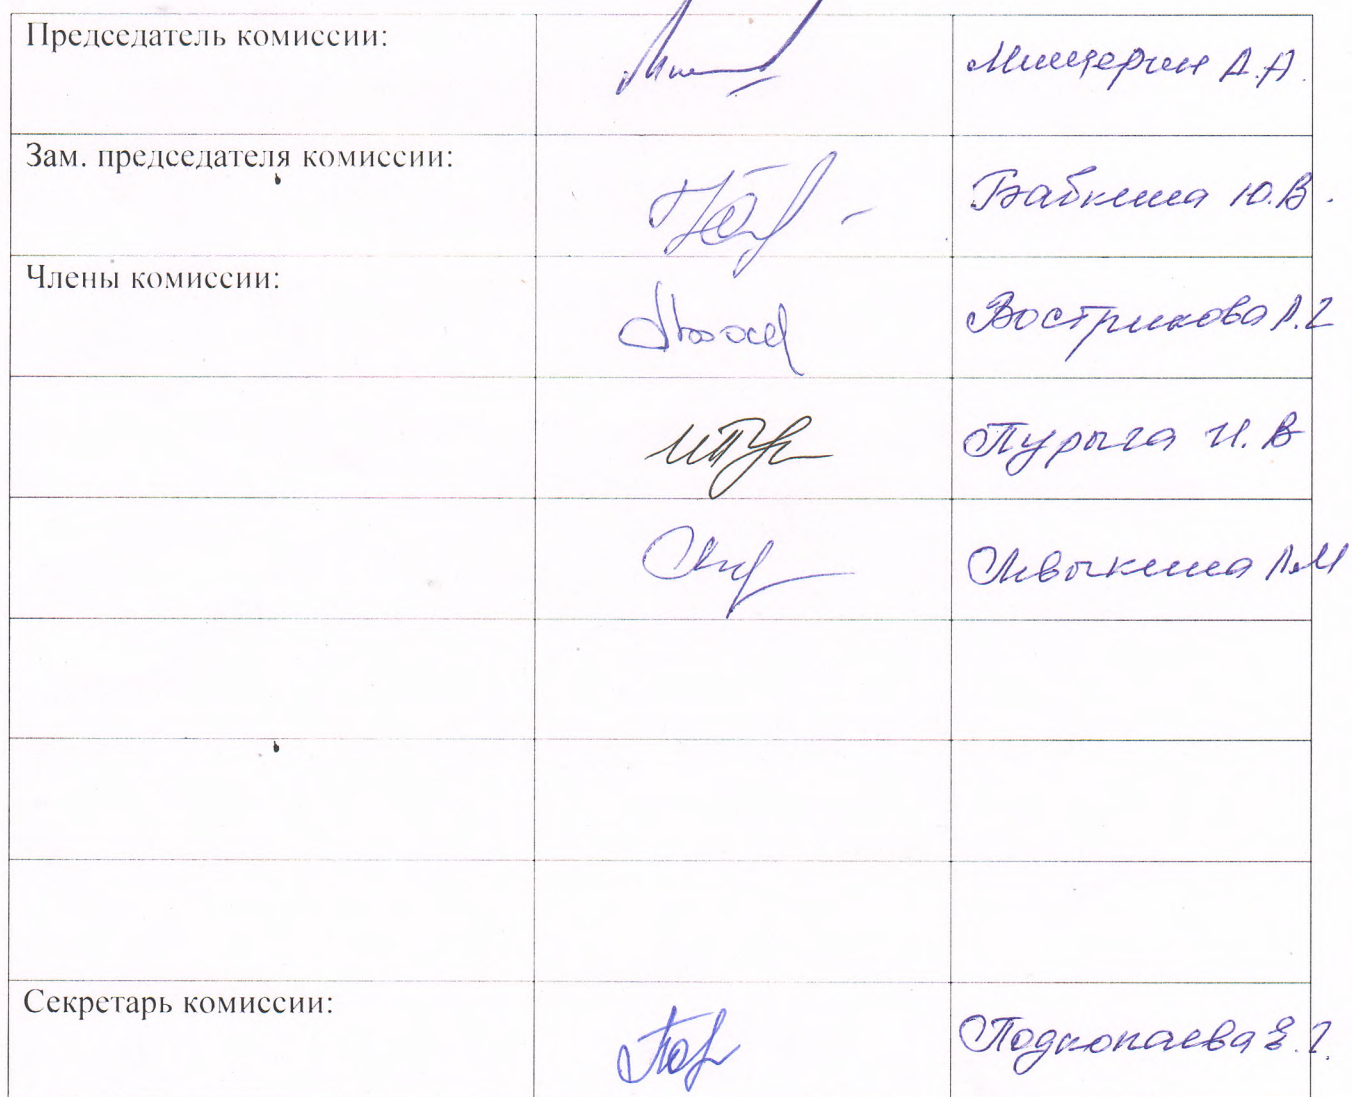 Председатель комиссии: Мищерин А.А.
Зам. председателя комиссии: Бабкина Ю.В.
Члены комиссии: Вострикова Л.Г
Пурыга И.В
Л.М
Секретарь комиссии: Подкопаева Е.Г.